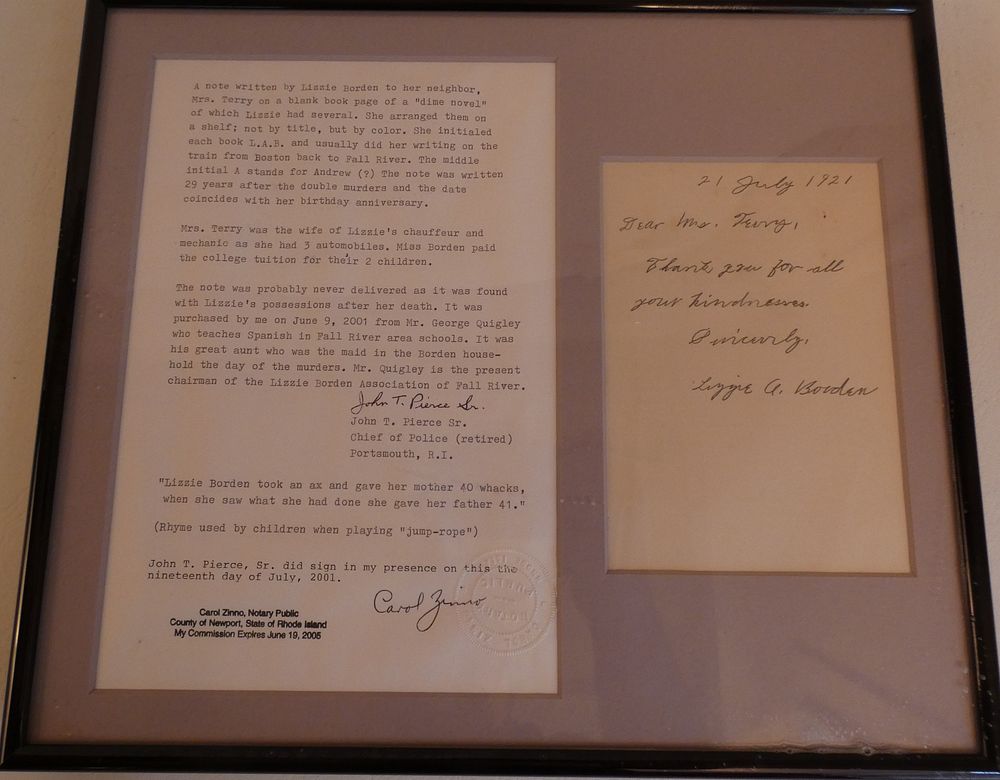 A note written by Lizzie Borden to her neighbor,
Mrs. Terry on a blank book page of a "dime novel"
of which Lizzie had several. She arranged them on
a shelf; not by title, but by color. She initialed
each book L.A.B. and usually did her writing on the
train from Boston back to Fall River. The middle
initial A stands for Andrew (?) The note was written
29 years after the double murders and the date
coincides with her birthday anniversary.
Mrs. Terry was the wife of Lizzie's chauffeur and
mechanic as she had 3 automobiles. Miss Borden paid
the college tuition for their 2 children.
The note was probably never delivered as it was found
with Lizzie's possessions after her death. It was
purchased by me on June 9, 2001 from Mr. George Quigley
who teaches Spanish in Fall River area schools. It was
his great aunt who was the maid in the Borden house-
hold the day of the murders. Mr. Quigley is the present
chairman of the Lizzie Borden Association of Fall River.
John T. Pierce Sr.
John T. Pierce Sr.
Chief of Police (retired)
Portsmouth, R.I.
"Lizzie Borden took an ax and gave her mother 40 whacks,
when she saw what she had done she gave her father 41."
(Rhyme used by children when playing "jump-rope")
John T. Pierce, Sr. did sign in my presence on this the
nineteenth day of July, 2001.
Carol Zinno
Carol Zinno, Notary Public
County of Newport, State of Rhode Island
My Commission Expires June 19, 2005
21 July 1921
Dear Mrs. Terry,
Thank you for all
your kindnesses.
Sincerely,
Lizzie A. Borden